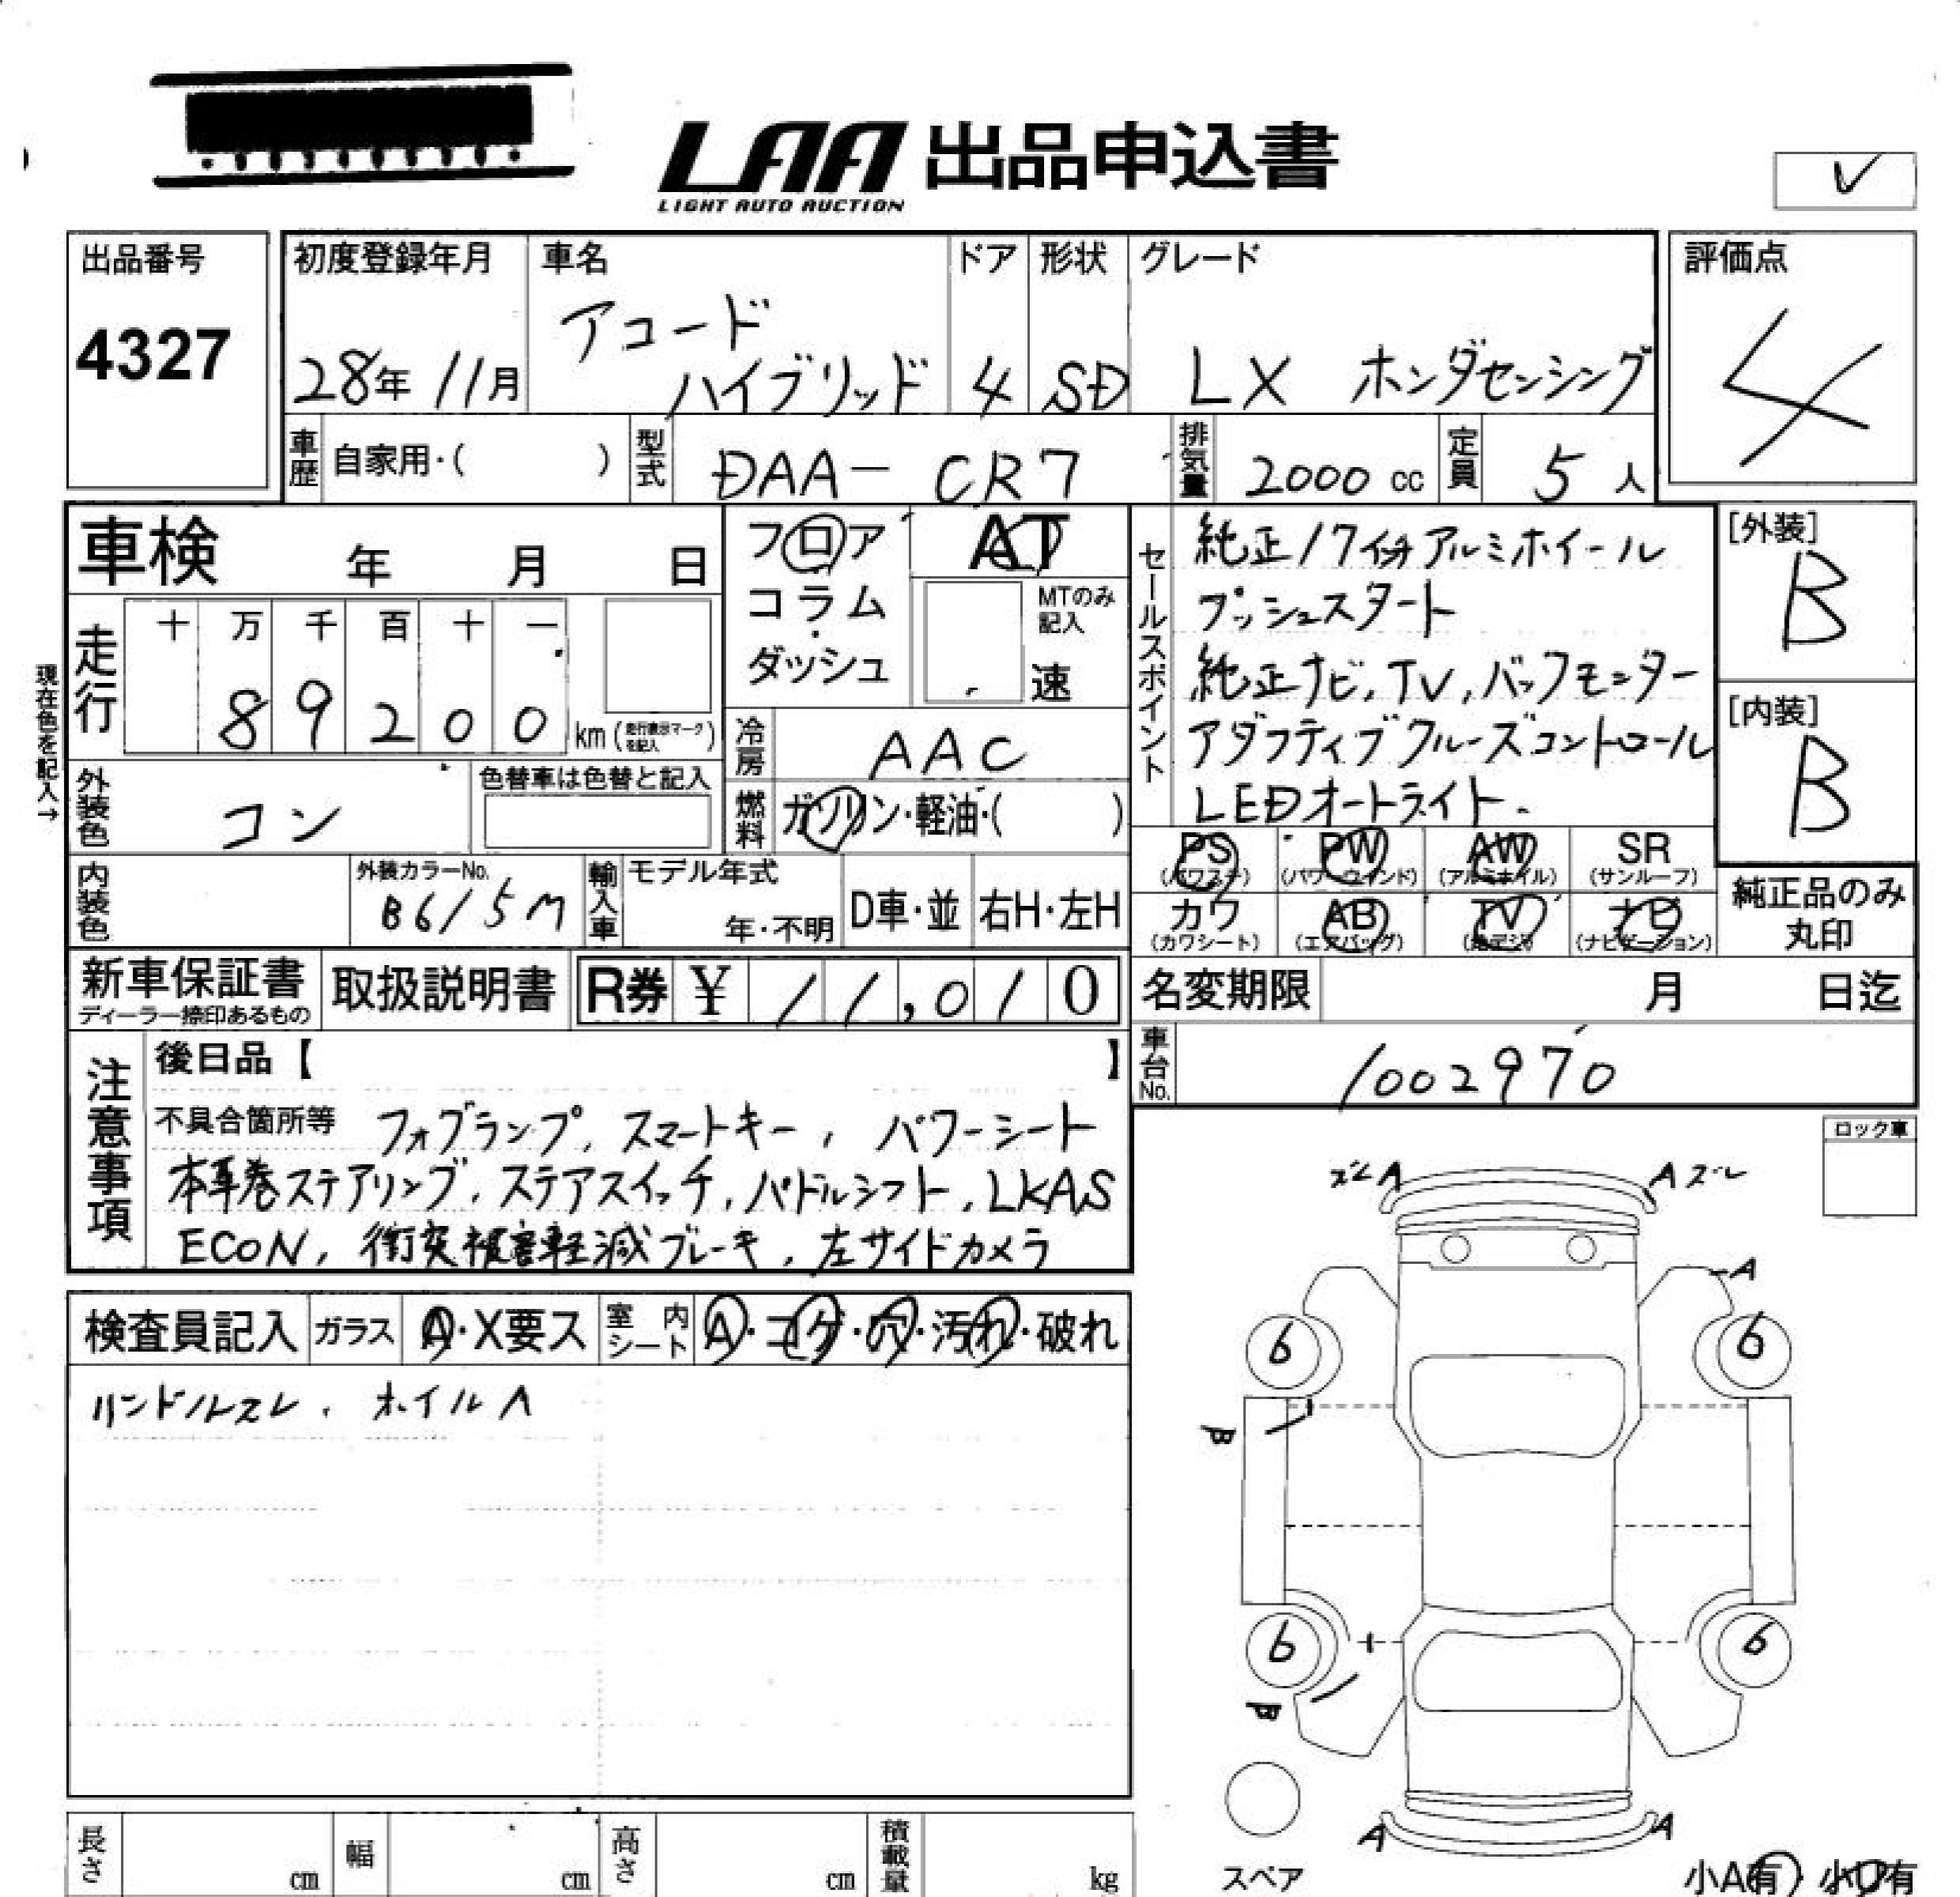 LAA 出品申込書
LIGHT AUTO AUCTION
出品番号
4327
初度登録年月
28年 11月
車名
アコード
ハイブリッド
ドア
4
形状
SD
グレード
LX ホンダセンシング
評価点
4
車歴 自家用・( )
型式 DAA- CR7
排気量 2000 cc
定員 5 人
車検 年 月 日
フロア
コラム
ダッシュ
AT
MTのみ
記入
速
走行
十 万 千 百 十 一
8 9 2 0 0
km (走行表示マークを記入)
現在色を記入→
冷房 AAC
燃料 ガソリン・軽油・( )
外装色 コン
色替車は色替と記入
内装色
外装カラーNo.
B615M
輸入車
モデル年式
年・不明
D車・並
右H・左H
セールスポイント
純正17インチアルミホイール
プッシュスタート
純正ナビ,TV,バックモニター
アダプティブクルーズコントロール
LEDオートライト
[外装]
B
[内装]
B
PS
(パワステ)
PW
(パワーウインド)
AW
(アルミホイル)
SR
(サンルーフ)
カワ
(カワシート)
AB
(エアバッグ)
TV
(地デジ)
ナビ
(ナビゲーション)
純正品のみ
丸印
新車保証書
ディーラー捺印あるもの
取扱説明書
R券 ¥ 11,010
名変期限 月 日迄
車台No. 1002970
注意事項
後日品【 】
不具合箇所等 フォグランプ, スマートキー, パワーシート
本革巻ステアリング, ステアスイッチ, パドルシフト, LKAS
ECON, 衝突被害軽減ブレーキ, 左サイドカメラ
ロック車
検査員記入
ガラス A・X要ス
室内シート A・コゲ・穴・汚れ・破れ
ハンドルスレ. ホイルA
ズレA
Aズレ
A
6
6
B
6
6
B
A
A
スペア
小A有・小U有
長さ cm
幅 cm
高さ cm
積載量 kg